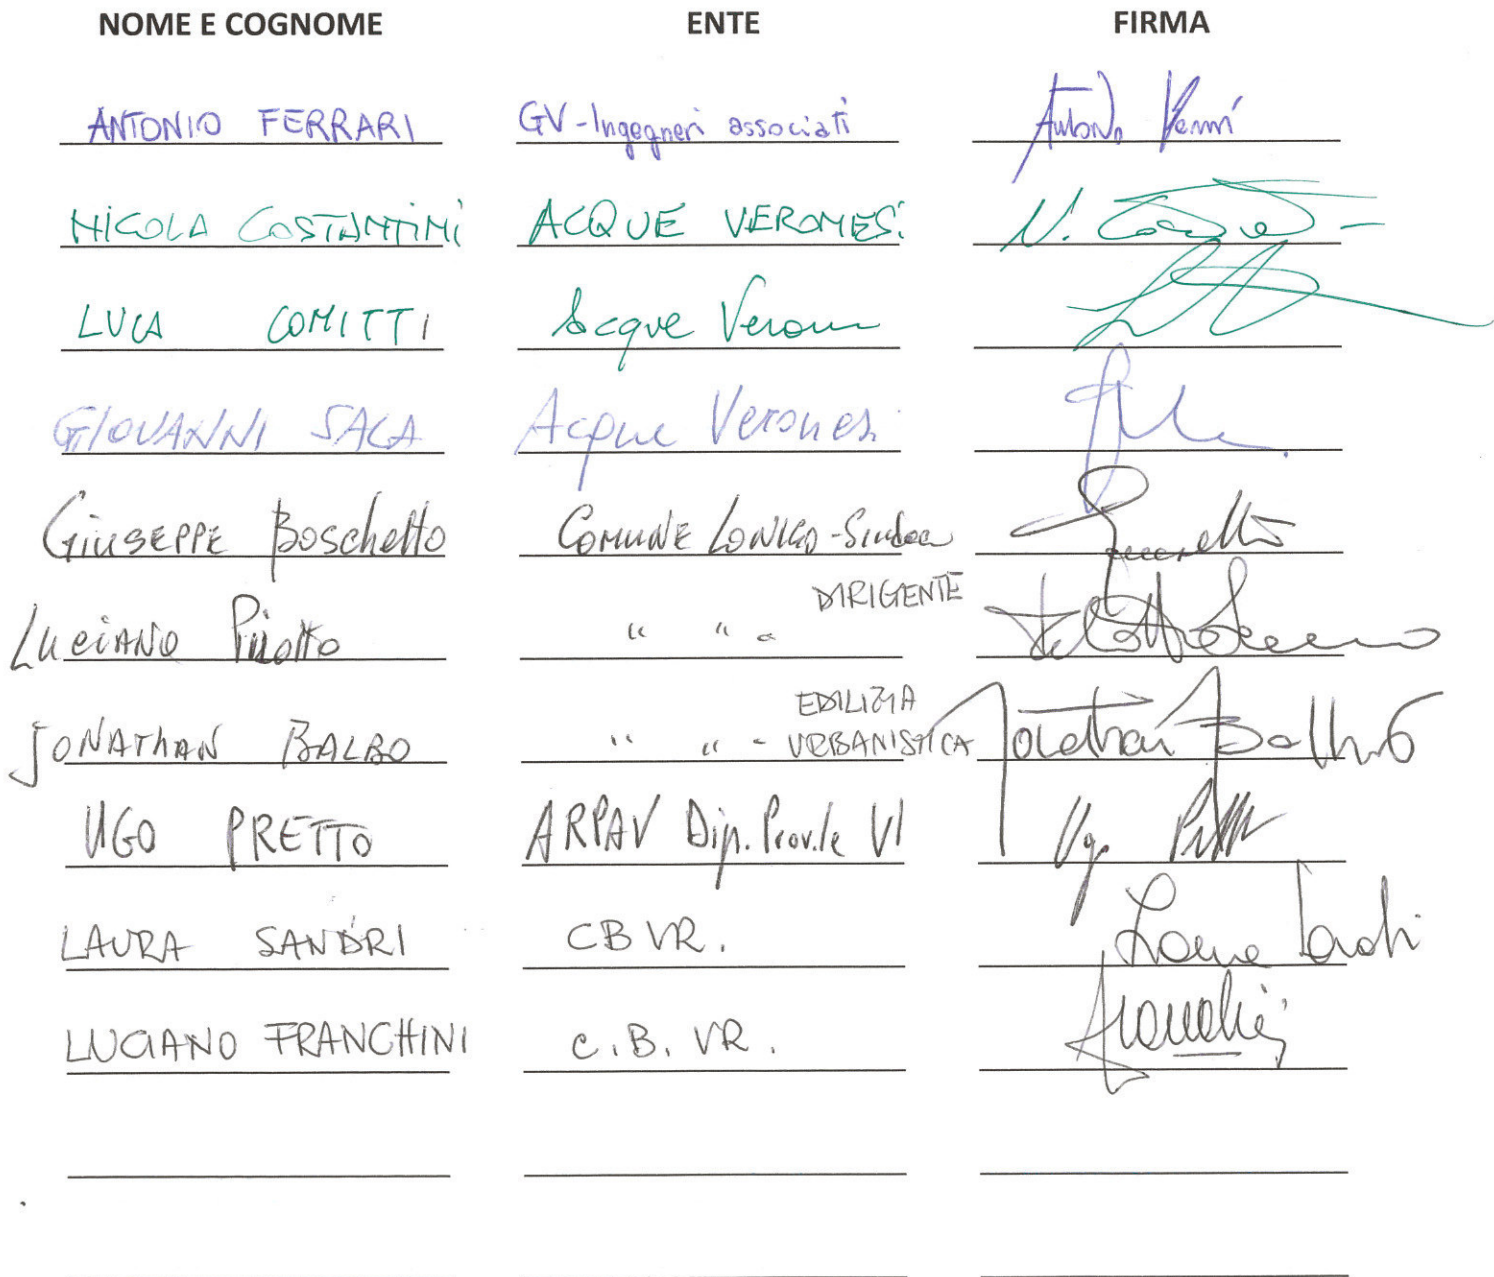 NOME E COGNOME ENTE FIRMA
ANTONIO FERRARI GV-Ingegneri associati Antonio Ferrari
NICOLA COSTANTINI ACQUE VERONESI N.
LUCA COMITTI Acque Veronesi
GIOVANNI SALA Acque Veronesi
GIUSEPPE Boschetto COMUNE LONIGO-Sindaco
DIRIGENTE
LUCIANO " " "
EDILIZIA
JONATHAN BALBO " " - URBANISTICA Jonathan Balbo
UGO PRETTO ARPAV Dip. Prov.le VI Ugo Pretto
LAURA SANDRI CB VR. Laura Sandri
LUCIANO FRANCHINI C.B. VR. Franchini